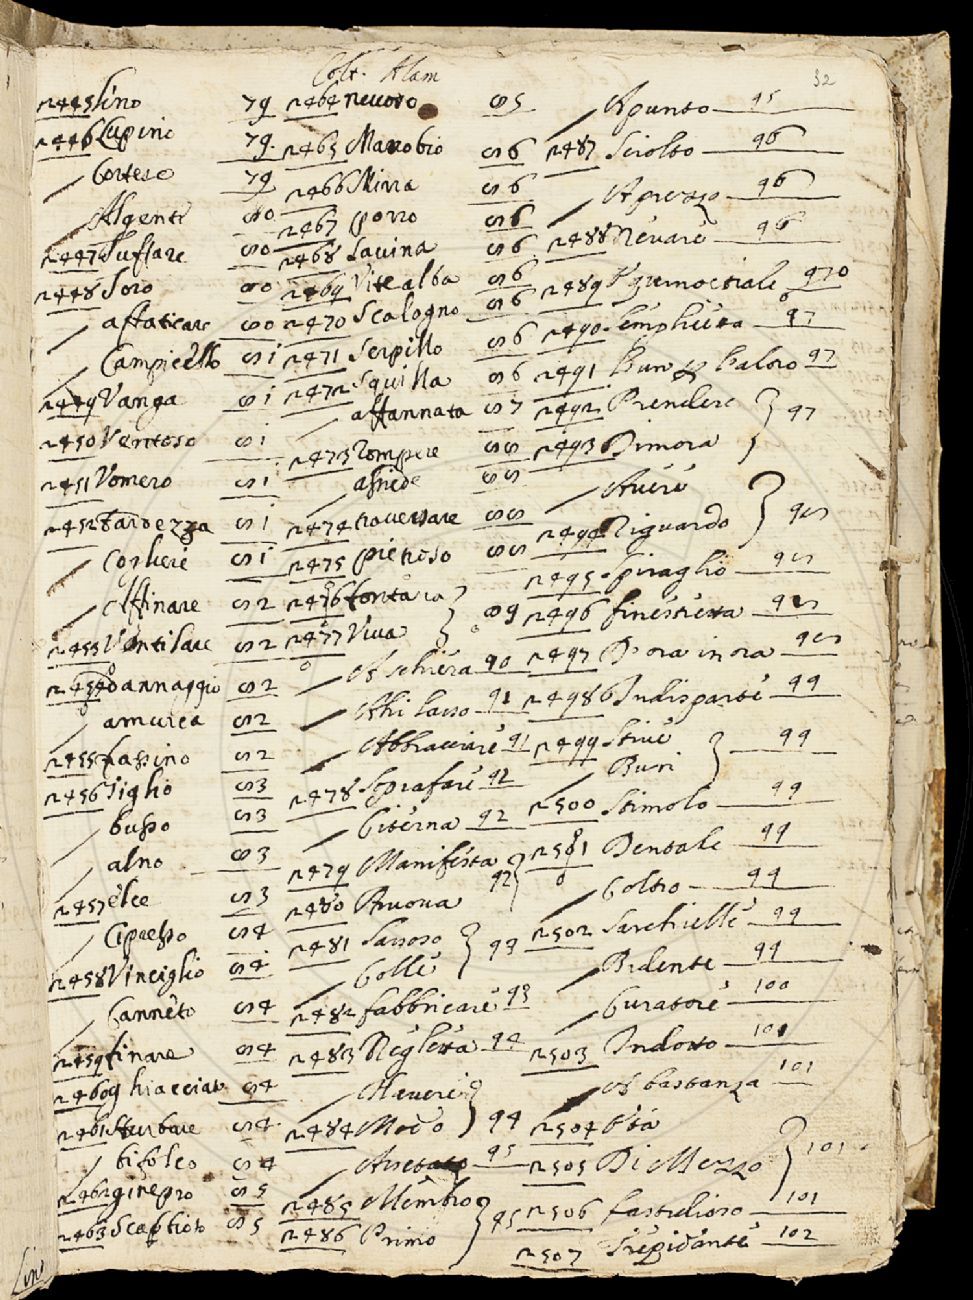 Colt. Alam
32
2445 lino 79
2446 Lupini 79.
Cortese 79
Algente 80
2447 Suflare 80
2448 Soro 80
affaticare 80
Campicello 81
2449 Vanga 81
2450 Ventoso 81
2451 Vomero 81
2452 Tardezza 81
Coglieri 81
Affinare 82
2453 Ventilare 82
2454 dannaggio 82
amurca 82
2455 fassino 82
2456 Tiglio 83
busso 83
alno 83
2457 elce 83
Cipresso 84
2458 Vinciglio 84
Canneto 84
2459 finare 84
2460 ghiacciato 84
2461 Turbare 84
bifolco 84
2462 ginepro 85
2463 Scabbioso 85
2464 nevoso 85
2465 Marrobio 86
2466 Mirra 86
2467 porro 86
2468 Savina 86
2469 Vite alba 86
2470 Scalogno 86
2471 Serpillo 86
2472 Squilla 86
affannata 87
2473 rompere 88
assiede 88
2474 traversare 88
2475 pietroso 88
2476 fontana
2477 Viva 89
A schiera 90
Ahi lasso 91
Abbracciare 91
2478 Soprafare 92
Citerna 92
2479 Manifesta
2480 Nuova 92
2481 Sassoso
Colle 93
2482 fabbricare 93
2483 Negletta 94
Haveri
2484 Modo 94
Assetato 95
2485 Membro
2486 Primo 95
Apunto 95
2487 Sciolto 96
Aprezzo 96
2488 Nevare 96
2489 Equinoctiale 970
2490 Semplicetta 97
2491 Bun & Caloro 97
2492 Prendere
2493 Dimora 97
Avere
2494 Riguardo 98
2495 Spiraglio 98
2496 finestretta 98
2497 D'ora in ora 98
2498 Indisparte 99
2499 Stive
Buri 99
2500 Stimolo 99
2501 Dentale 99
Coltro 99
2502 Sarchielle 99
Bidente 99
Curatore 100
2503 Indotto 100
A bastanza 101
2504 Età
2505 Di Mezzo 101
2506 fastidioso 101
2507 Trepidante 102
Lini